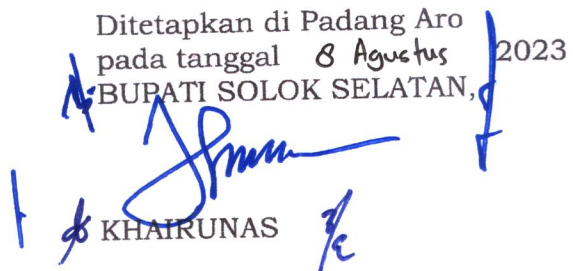 Ditetapkan di Padang Aro
pada tanggal 8 Agustus 2023
BUPATI SOLOK SELATAN,
KHAIRUNAS